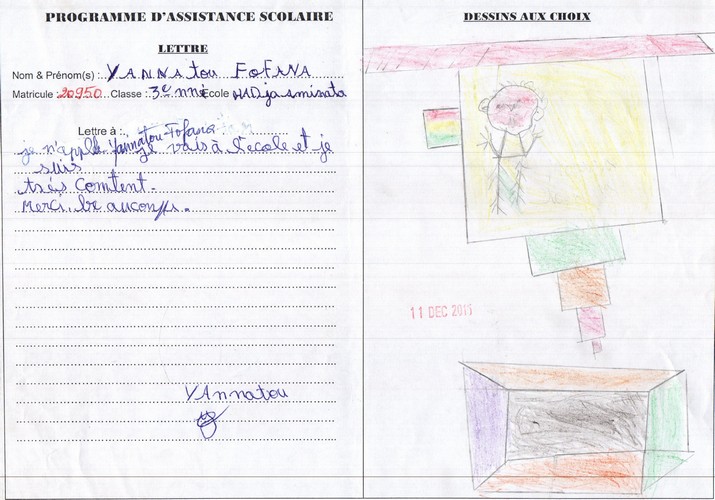 PROGRAMME D'ASSISTANCE SCOLAIRE
LETTRE
Nom & Prénom(s) : YANNAtou FOFANA
Matricule : 20950 Classe : 3e nné École HADja aminata
Lettre à :
je n'applle Yannatou-Fofana je vais à l'ecole et je
suis
très Comtent.
Merci. be aucoup.
YAnnatou
DESSINS AUX CHOIX
11 DEC 2015